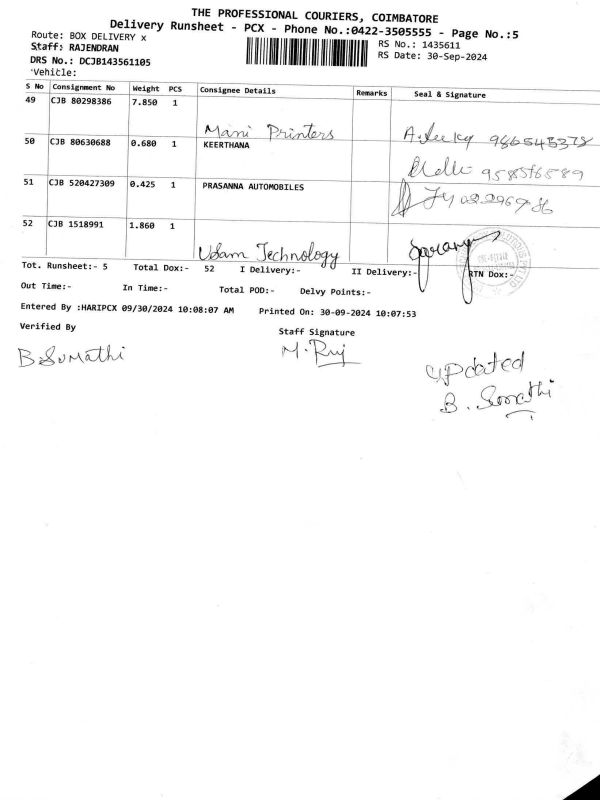 THE PROFESSIONAL COURIERS, COIMBATORE
Delivery Runsheet - PCX - Phone No.:0422-3505555 - Page No.:5
Route: BOX DELIVERY x
RS No.: 1435611
Staff: RAJENDRAN
RS Date: 30-Sep-2024
DRS No.: DCJB143561105
Vehicle:
S No Consignment No Weight PCS Consignee Details Remarks Seal & Signature
49 CJB 80298386 7.850 1
Mani Printers
50 CJB 80630688 0.680 1 KEERTHANA
51 CJB 520427309 0.425 1 PRASANNA AUTOMOBILES
52 CJB 1518991 1.860 1
Technology
Tot. Runsheet:- 5 Total Dox:- 52 I Delivery:- II Delivery:- RTN Dox:-
Out Time:- In Time:- Total POD:- Delvy Points:-
Entered By :HARIPCX 09/30/2024 10:08:07 AM Printed On: 30-09-2024 10:07:53
Verified By Staff Signature
B. Sumathi M. Raj
updated
B. Sumathi